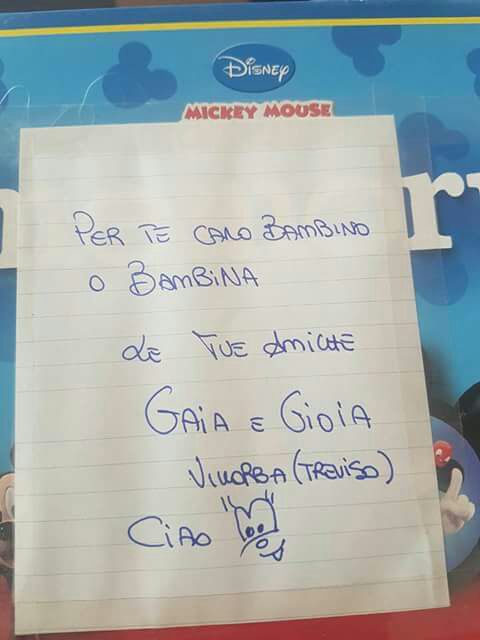 Disney
MICKEY MOUSE
PER TE CARO BAMBINO
O BAMBINA
LE TUE AMICHE
GAIA E GIOIA
VILLORBA (TREVISO)
CIAO